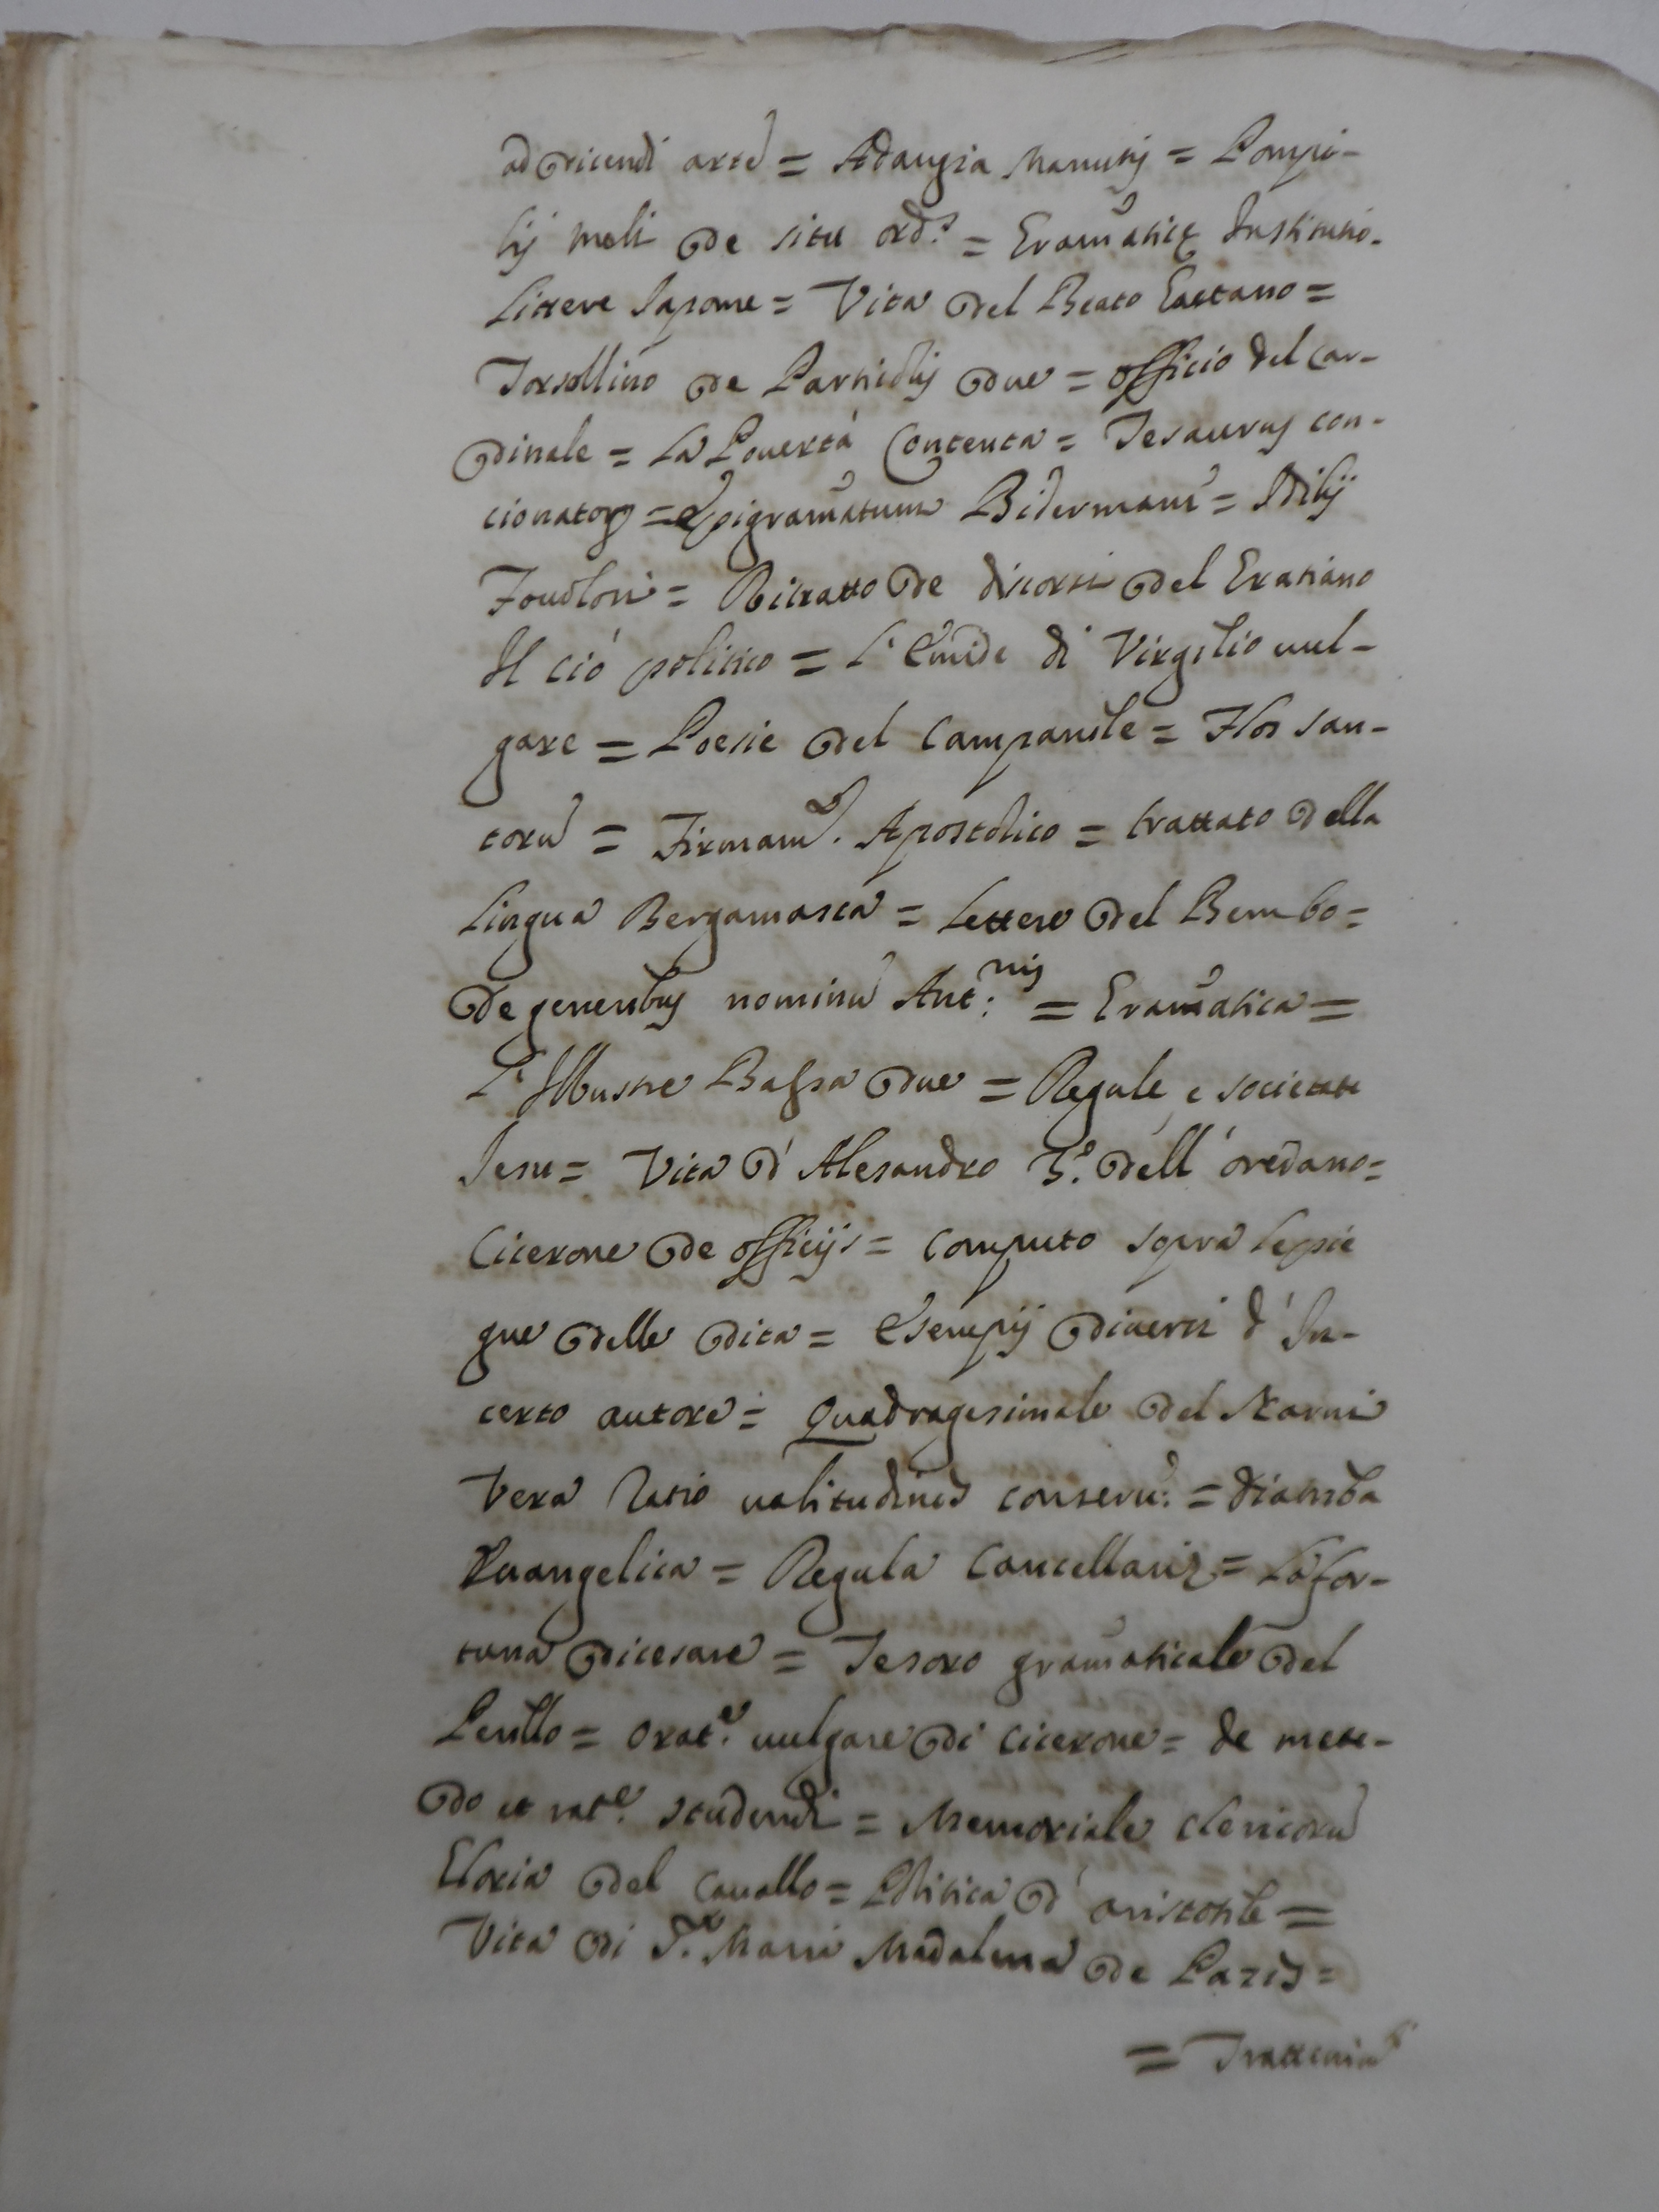 ad dicendi artē = Adaugia Manutij = Pompi-
lij meli de situ orb.s = Gram̄aticę Institutio.
Littere Iapone = Vita del Beato Gaetano =
Torsellino de Particulis due = officio del Car-
dinale = La Pouertà Contenta = Tesaurus con-
cionatorū = Epigram̄atum Bidermani = Idilij
= Ritratto de discorsi del Gratiano
Il Ciò politico = L'Eneide di Virgilio uul-
gare = Poesie del Campanile = Flos san-
torū = Firmam.to Apostolico = trattato della
lingua Bergamasca = Lettere del Bembo =
De generibus nominū Ant:nij = Gram̄atica =
L'Illustre Bassa due = Regule e societate
Iesu = Vita d'Alesandro 3.o dell'oredano =
Cicerone de officijs = Computo sopra le pie
gue delle dita = Esempij diuersi d'In-
certo autore = Quadragesimale del Narni
Vera Ratio ualitudinis conseru: = diatriba
Euangelica = Regula Cancellarię = La for-
tuna di Cesare = Tesoro gram̄aticale del
Perillo = Orat.e uulgare di Cicerone = de mete-
do et rat.e studendi = Memoriale clericorū
Gloria del Cauallo = Politica d'aristotile =
Vita di S.ta Maria Madalena de Pazis =
= Trattenim.ti